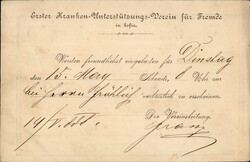 Erster Kranken-Unterstützungs-Verein für Fremde
in Sofia.
Werden freundlichst eingeladen für Dinstag
den 15. May Abends, Uhr
bei Herrn Fröhlich verlässlich zu erscheinen.
Die Vereinsleitung:
14/V.